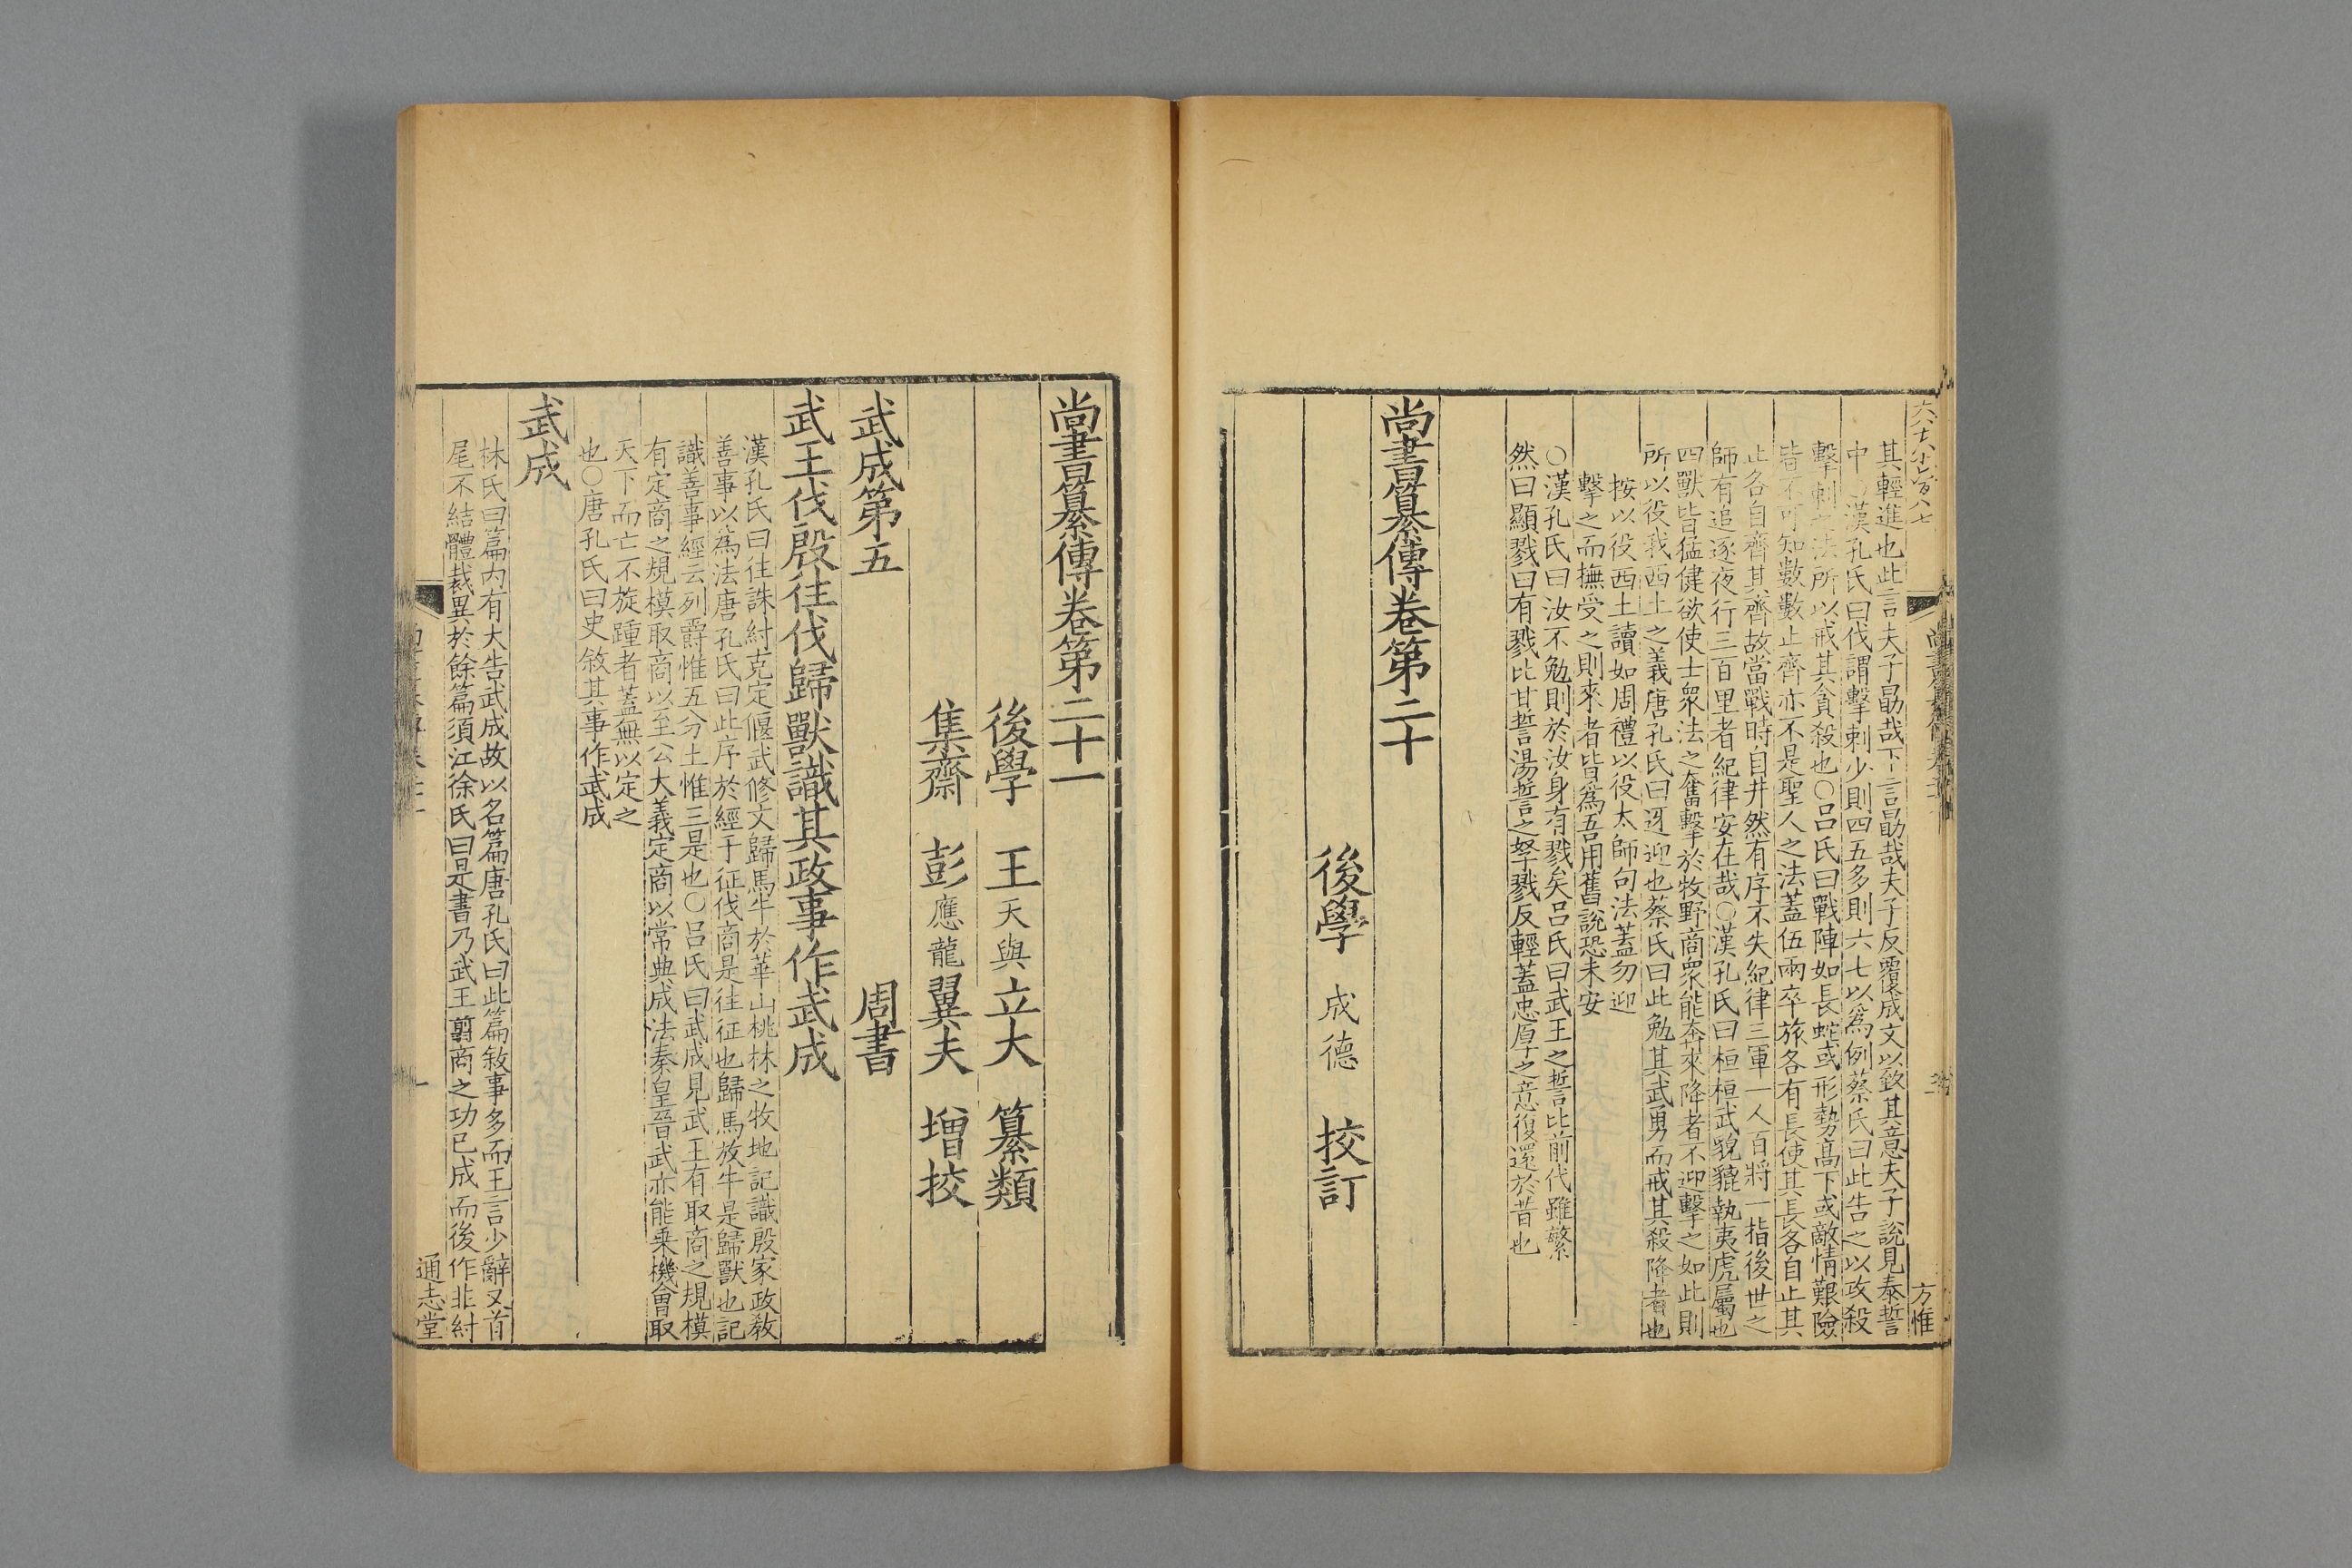 其輕進也此言夫子勗哉下言勗哉夫子反覆成文以致其意夫子說見泰誓
中○漢孔氏曰伐謂擊刺少則四五多則六七以為例蔡氏曰此告之以攻殺
擊刺之法所以戒其貪殺也○呂氏曰戰陣如長蛇或形勢高下或敵情艱險
皆不可知數數止齊亦不是聖人之法蓋伍兩卒旅各有長使其長各自止其
止各自齊其齊故當戰時自井然有序不失紀律三軍一人百將一指後世之
師有追逐夜行三百里者紀律安在哉○漢孔氏曰桓桓武貌貔執夷虎屬也
四獸皆猛健欲使士眾法之奮擊於牧野商眾能奔來降者不迎擊之如此則
所以役我西土之義唐孔氏曰迓迎也蔡氏曰此勉其武勇而戒其殺降者也
按以役西土讀如周禮以役太師句法蓋勿迎
擊之而撫受之則來者皆為吾用舊說恐未安
○漢孔氏曰汝不勉則於汝身有戮矣呂氏曰武王之誓比前代雖繁
然曰顯戮曰有戮比甘誓湯誓之孥戮反輕蓋忠厚之意復還於昔也
尚書纂傳卷第二十
後學 成德 挍訂
方惟
尚書纂傳卷第二十一
後學 王天與立大 纂類
集齋 彭應龍翼夫 增挍
武成第五 周書
武王伐殷往伐歸獸識其政事作武成
漢孔氏曰往誅紂克定偃武修文歸馬牛於華山桃林之牧地記識殷家政教
善事以為法唐孔氏曰此序於經于征伐商是往征也歸馬放牛是歸獸也記
識善事經云列爵惟五分土惟三是也○呂氏曰武成見武王有取商之規模
有定商之規模取商以至公大義定商以常典成法秦皇晉武亦能乘機會取
天下而亡不旋踵者蓋無以定之
也○唐孔氏曰史敘其事作武成
武成
林氏曰篇內有大告武成故以名篇唐孔氏曰此篇敘事多而王言少辭又首
尾不結體裁異於餘篇須江徐氏曰是書乃武王翦商之功已成而後作非紂
通志堂